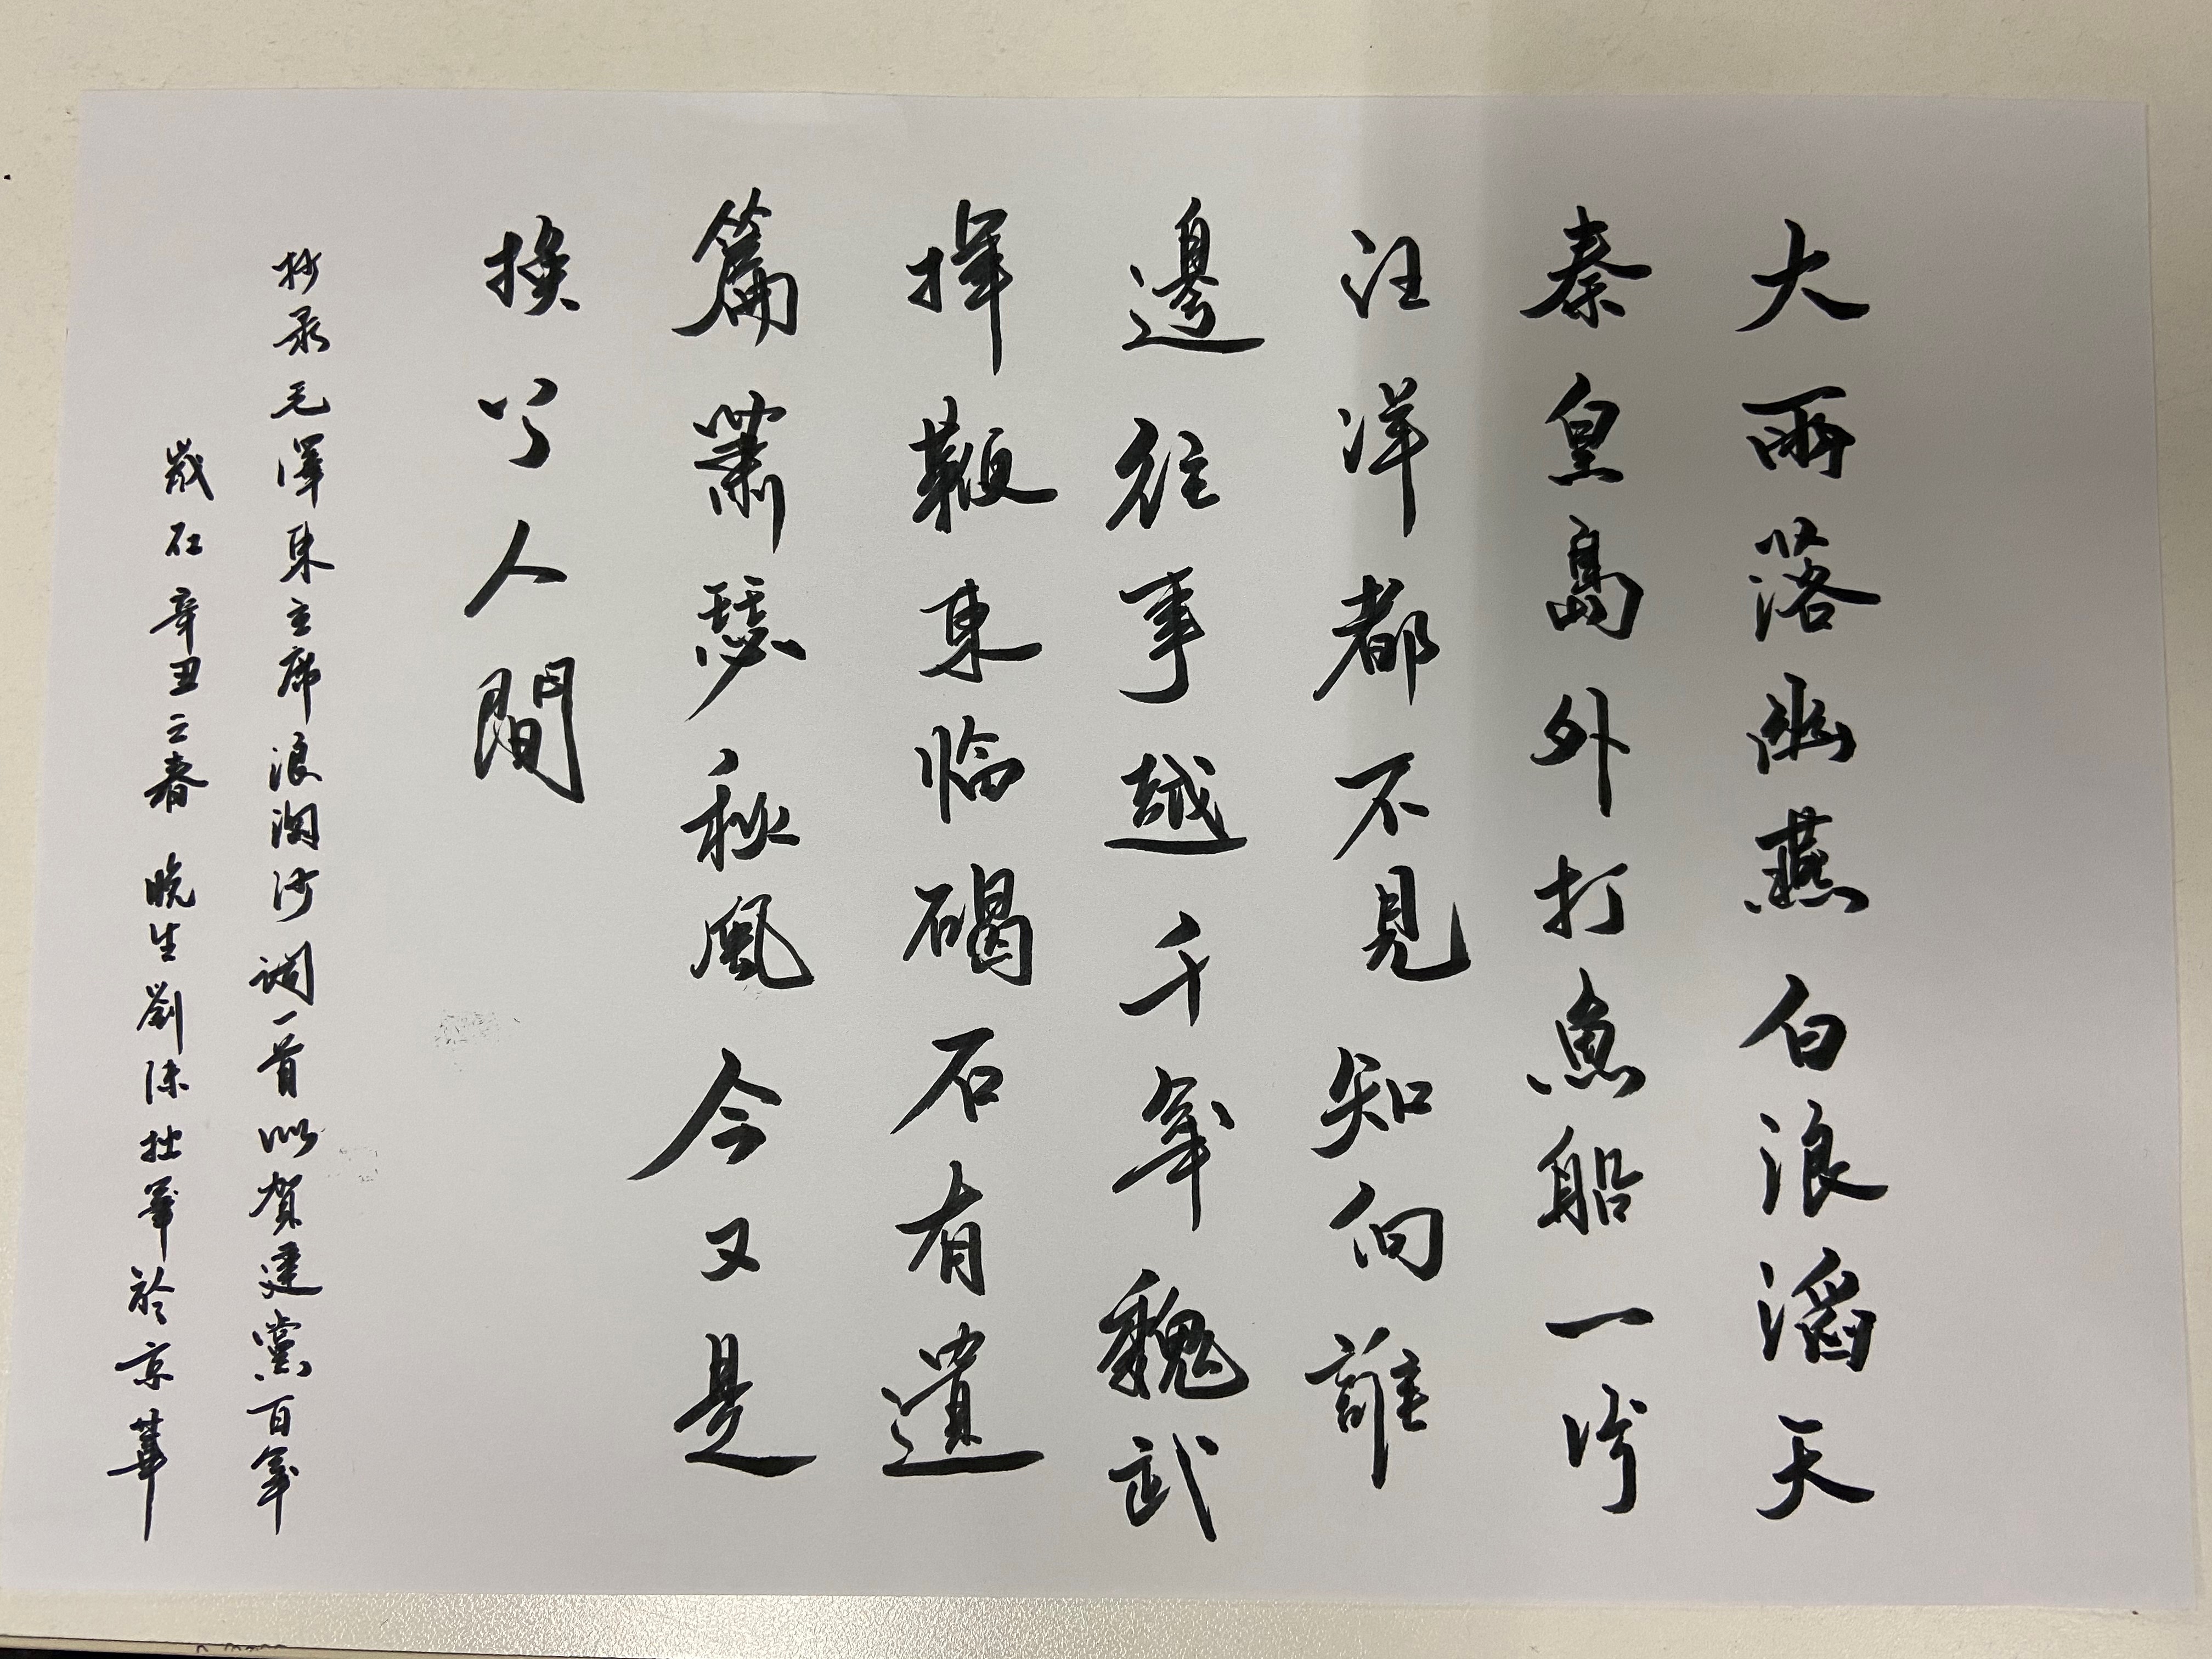 大雨落幽燕白浪滔天
秦皇島外打魚船一片
汪洋都不見知向誰
邊往事越千年魏武
揮鞭東临碣石有遺
篇蕭瑟秋風今又是
換兮人間
抄录毛澤東主席浪淘沙词一首以賀建黨百年
歲在辛丑立春晚生劉沫拙筆於京華